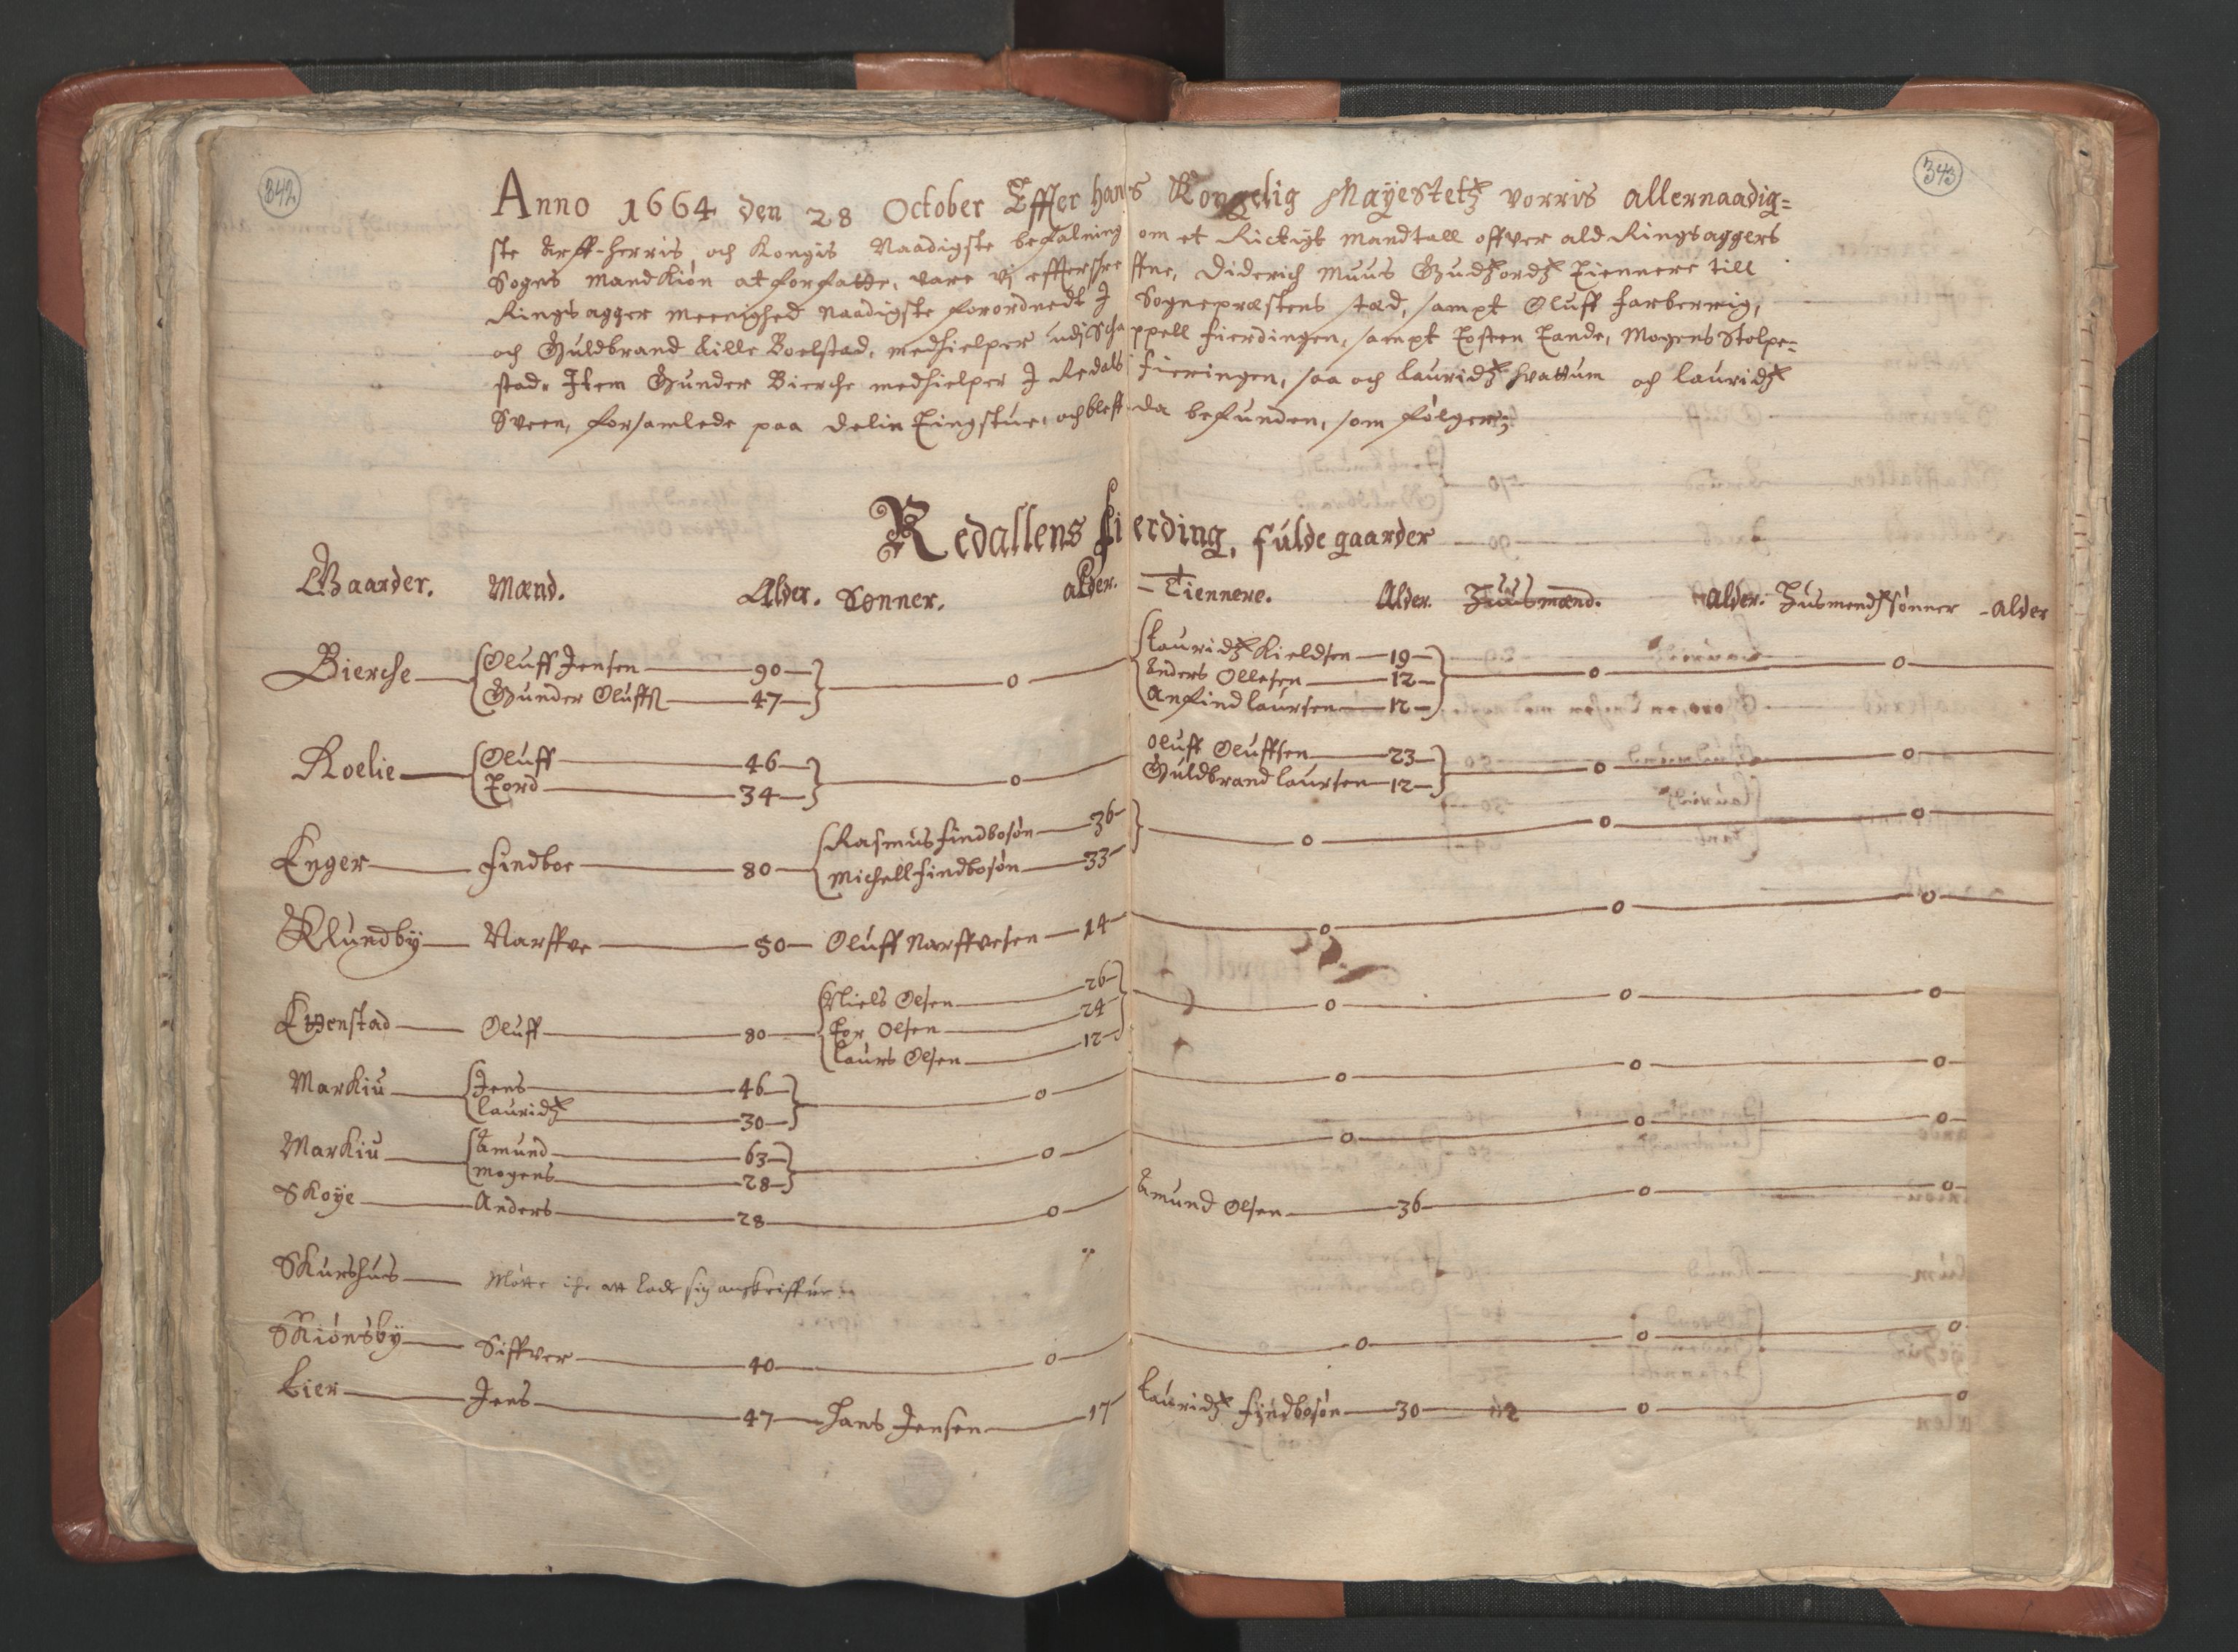 342
343
Anno 1664 den 28 October Effter hans Kongelig Mayestetz vorris allernaadig=
ste Arff-herris, och Kongis Naadigste befalning om et Richtigt mandtall offver ald Ringsaggers
Sogns Mandkiøn at forfatte, vare vj effterschreffne, Diderich Muus Gudz ordz tiennere till
Ringsagger meenighed Naadigste forordnedt I Sognepræstens sted, sampt Oluff farberrig,
och Guldbrand Lille Boelstad, medhielper udj Schappell fierdingen, sampt Tosten Tande, Mogens Stolpe=
stad, Item Gunder Bierche medhielper I Redals fieringen, saa och Lauridz Hvattum och Lauridz
Sveen, forsamlede paa Delin Tingstue, och bleff da befunden, som følger:
Redallens fierding, fulde gaarder
Gaarder. Mænd. Alder. Sønner. alder. Tiennere. Alder. Huusmænd. alder. Husmendz sønner - alder
Bierche Oluff Jensen 90 o Lauridz Kieldsen 19 o o
Gunder Oluffß 47 Anders Ollesen 12
Anfind Laursen 12
Roelie Oluff 46 o Oluff Oluffsen 23 o o
Tord 34 Guldbrand Laursen 12
Enger findboe 80 Rasmus findbosøn 36 o o o
Michell findbosøn 33
Klundby Narffve 50 Oluff Narffvesen 14 o o o
Evenstad Oluff 80 Niels Olsen 26 o o o
Tor Olsen 24
Laurs Olsen 12
Markiu Jens 46 o o o o
Lauridz 30
Markiu Amund 63 o o o o
Mogens 28
Skoye Anders 28 o Amund Olsen 36 o o
Skurshuus Møtte iche att lade sig anskriffve
Skiønsby Siffver 40 o o o o
Lier Jens 47 Hans Jensen 17 Lauridz fyndbosøn 30 o o